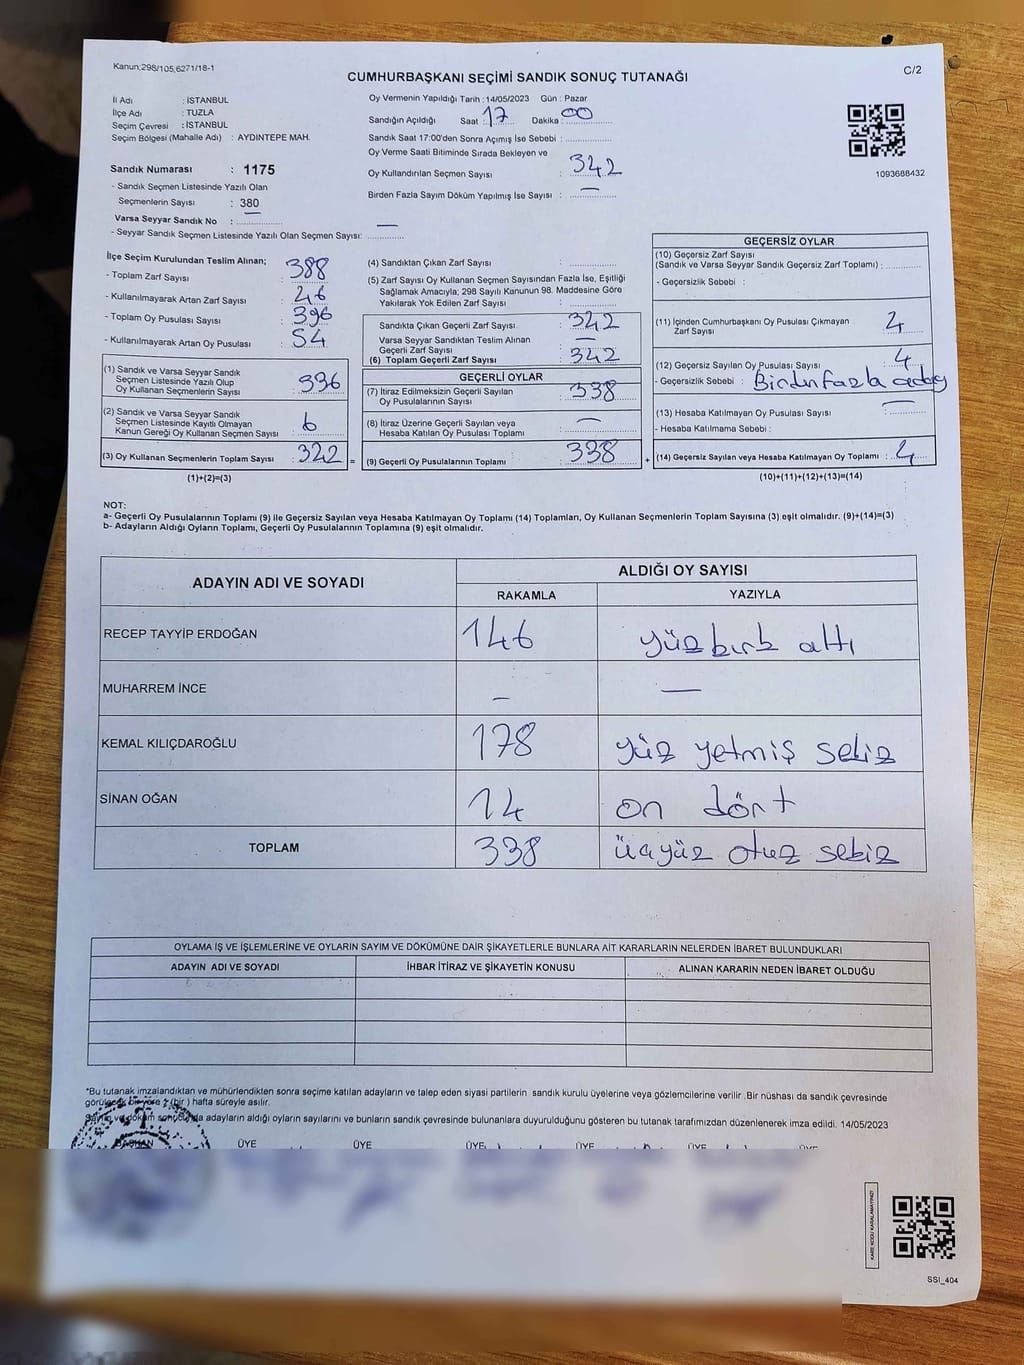 Kanun:298/105,6271/18-1
C/2
CUMHURBAŞKANI SEÇİMİ SANDIK SONUÇ TUTANAĞI
İl Adı : İSTANBUL
İlçe Adı : TUZLA
Seçim Çevresi : İSTANBUL
Seçim Bölgesi (Mahalle Adı) : AYDINTEPE MAH.
Sandık Numarası : 1175
- Sandık Seçmen Listesinde Yazılı Olan
Seçmenlerin Sayısı : 380
Varsa Seyyar Sandık No : —
- Seyyar Sandık Seçmen Listesinde Yazılı Olan Seçmen Sayısı: —
Oy Vermenin Yapıldığı Tarih : 14/05/2023 Gün : Pazar
Sandığın Açıldığı Saat : 17 Dakika : 00
Sandık Saat 17:00'den Sonra Açımış İse Sebebi :
Oy Verme Saati Bitiminde Sırada Bekleyen ve
Oy Kullandırılan Seçmen Sayısı : 342
Birden Fazla Sayım Döküm Yapılmış İse Sayısı : —
1093688432
İlçe Seçim Kurulundan Teslim Alınan;
- Toplam Zarf Sayısı : 388
- Kullanılmayarak Artan Zarf Sayısı : 46
- Toplam Oy Pusulası Sayısı : 396
- Kullanılmayarak Artan Oy Pusulası : 54
(1) Sandık ve Varsa Seyyar Sandık
Seçmen Listesinde Yazılı Olup
Oy Kullanan Seçmenlerin Sayısı : 336
(2) Sandık ve Varsa Seyyar Sandık
Seçmen Listesinde Kayıtlı Olmayan
Kanun Gereği Oy Kullanan Seçmen Sayısı : 6
(3) Oy Kullanan Seçmenlerin Toplam Sayısı : 342 =
(1)+(2)=(3)
(4) Sandıktan Çıkan Zarf Sayısı :
(5) Zarf Sayısı Oy Kullanan Seçmen Sayısından Fazla İse, Eşitliği
Sağlamak Amacıyla; 298 Sayılı Kanunun 98. Maddesine Göre
Yakılarak Yok Edilen Zarf Sayısı :
Sandıkta Çıkan Geçerli Zarf Sayısı : 342
Varsa Seyyar Sandıktan Teslim Alınan
Geçerli Zarf Sayısı : —
(6) Toplam Geçerli Zarf Sayısı : 342
GEÇERLİ OYLAR
(7) İtiraz Edilmeksizin Geçerli Sayılan
Oy Pusulalarının Sayısı : 338
(8) İtiraz Üzerine Geçerli Sayılan veya
Hesaba Katılan Oy Pusulası Toplamı : —
(9) Geçerli Oy Pusulalarının Toplamı : 338 +
GEÇERSİZ OYLAR
(10) Geçersiz Zarf Sayısı
(Sandık ve Varsa Seyyar Sandık Geçersiz Zarf Toplamı) :
- Geçersizlik Sebebi :
(11) İçinden Cumhurbaşkanı Oy Pusulası Çıkmayan
Zarf Sayısı :
(12) Geçersiz Sayılan Oy Pusulası Sayısı : 4
- Geçersizlik Sebebi : Birden fazla
(13) Hesaba Katılmayan Oy Pusulası Sayısı : —
- Hesaba Katılmama Sebebi :
(14) Geçersiz Sayılan veya Hesaba Katılmayan Oy Toplamı : 4
(10)+(11)+(12)+(13)=(14)
NOT:
a- Geçerli Oy Pusulalarının Toplamı (9) ile Geçersiz Sayılan veya Hesaba Katılmayan Oy Toplamı (14) Toplamları, Oy Kullanan Seçmenlerin Toplam Sayısına (3) eşit olmalıdır. (9)+(14)=(3)
b- Adayların Aldığı Oyların Toplamı, Geçerli Oy Pusulalarının Toplamına (9) eşit olmalıdır.
ADAYIN ADI VE SOYADI
ALDIĞI OY SAYISI
RAKAMLA YAZIYLA
RECEP TAYYİP ERDOĞAN 146 yüzkırk altı
MUHARREM İNCE — —
KEMAL KILIÇDAROĞLU 178 yüz yetmiş sekiz
SİNAN OĞAN 14 on dört
TOPLAM 338 üçyüz otuz sekiz
OYLAMA İŞ VE İŞLEMLERİNE VE OYLARIN SAYIM VE DÖKÜMÜNE DAİR ŞİKAYETLERLE BUNLARA AİT KARARLARIN NELERDEN İBARET BULUNDUKLARI
ADAYIN ADI VE SOYADI İHBAR İTİRAZ VE ŞİKAYETİN KONUSU ALINAN KARARIN NEDEN İBARET OLDUĞU
*Bu tutanak imzalandıktan ve mühürlendikten sonra seçime katılan adayların ve talep eden siyasi partilerin sandık kurulu üyelerine veya gözlemcilerine verilir .Bir nüshası da sandık çevresinde
görülecek bir yere 1 (bir ) hafta süreyle asılır.
Sayım ve döküm sonucunda adayların aldığı oyların sayılarını ve bunların sandık çevresinde bulunanlara duyurulduğunu gösteren bu tutanak tarafımızdan düzenlenerek imza edildi. 14/05/2023
BAŞKAN ÜYE ÜYE ÜYE ÜYE ÜYE ÜYE
KARE KODU KARALAMAYINIZ!
SSI_404